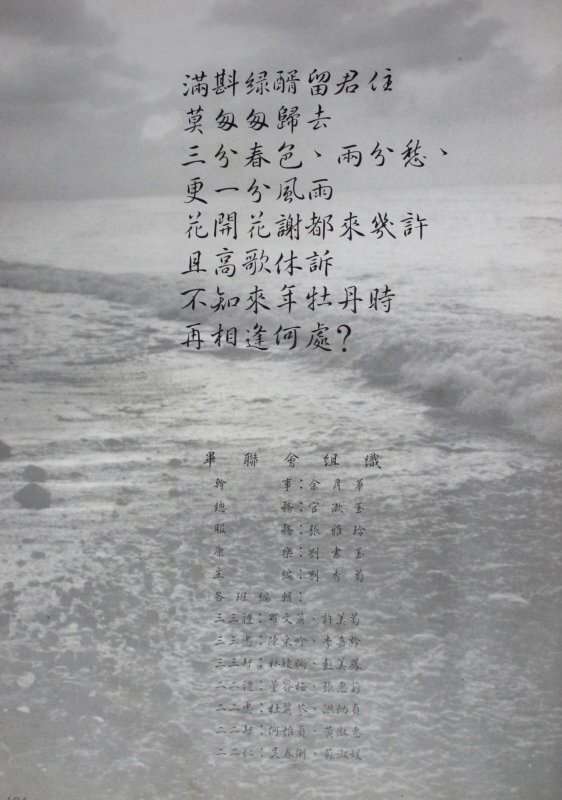 滿斟綠醑留君住
莫匆匆歸去
三分春色、兩分愁、
更一分風雨
花開花謝都來幾許
且高歌休訴
不知來年牡丹時
再相逢何處？
畢聯會組織
幹事：余月華
總務：官淑玉
服務：張雅玲
康樂：劉書玉
主編：劉秀菊
各班編輯：
三三禮：羅文英、許美菊
三三忠：陳榮吟、李嘉齡
三三智：林婕 、彭美鳳
二二禮：董谷梅、張惠莉
二二忠：杜翼琴、洪幼貞
二二智：何惟貞、黃淑惠
二二仁：吳春俐、蘇淑媛